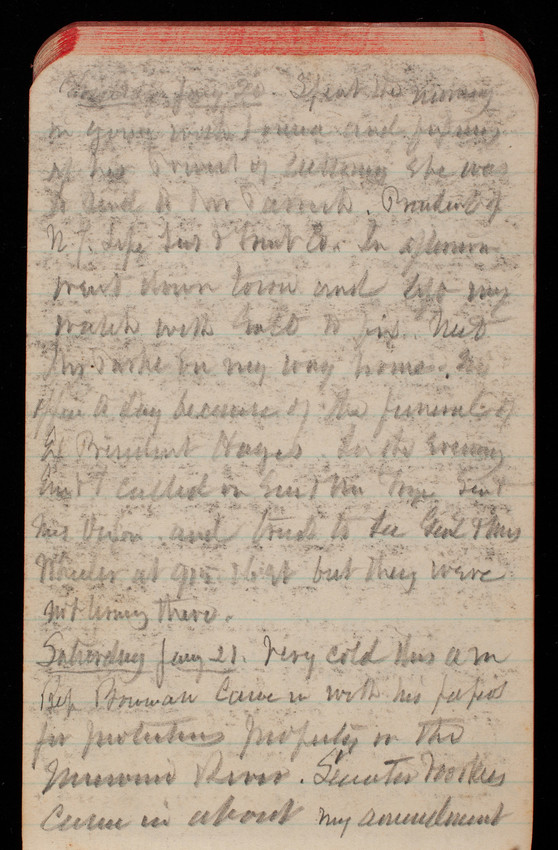 Jany 20. Spent the morning
in going with Donna and
of his of she was
to send to Mr Parrish. President of
N.Y. Life Ins & Trust Co. In afternoon
went down town and left my
watch with to fix. Met
Mr. on my way home. No
office a day because of the funeral of
Ex President Hayes. In the evening
and I called on Gen & Mrs Gen &
Mrs and tried to see Genl & Mrs
Wheeler at 915 16 st but they were
not living there.
Saturday Jany 21. Very cold this am
Rep Bowman came in with his papers
for protecting property on the
Missouri River. Senator Voorhees
came in about my amendment